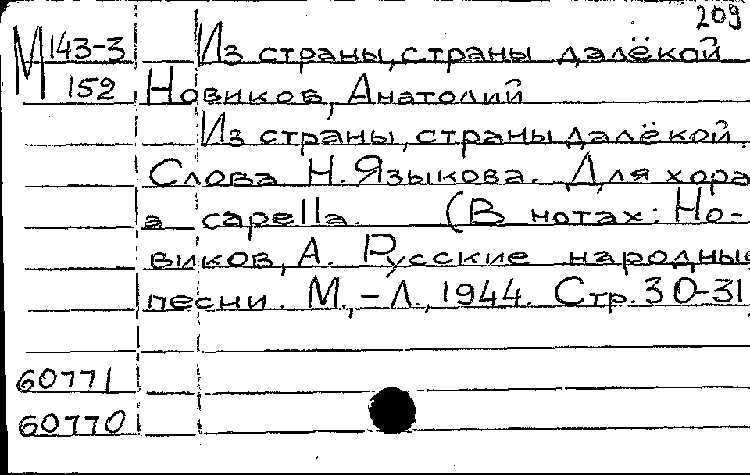 209
М 143-3 Из страны, страны далёкой
152 Новиков, Анатолий
Из страны, страны далёкой.
Слова Н. Языкова. Для хора
a capella. (В нотах: Но-
виков, А. Русские народные
песни. М.,-Л., 1944. Стр. 30-31
60771
60770